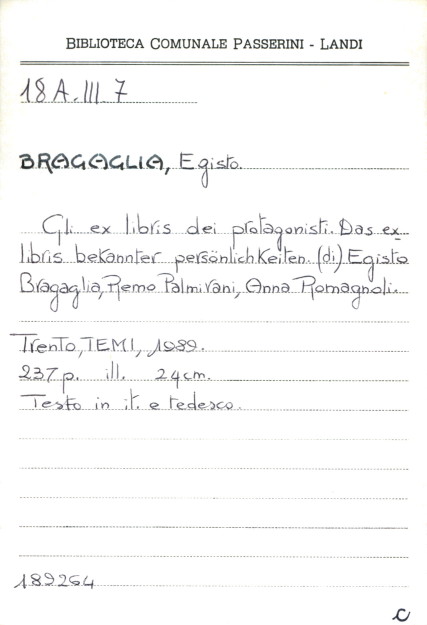 BIBLIOTECA COMUNALE PASSERINI - LANDI
18 A. III 7
BRAGAGLIA, Egisto.
Gli ex libris dei protagonisti. Das ex-
libris bekannter persönlichkeiten. (di) Egisto
Bragaglia, Remo Palmirani, Anna Romagnoli.
Trento, TEMI, 1989.
237 p. ill. 24 cm.
Testo in it. e tedesco.
189264
C